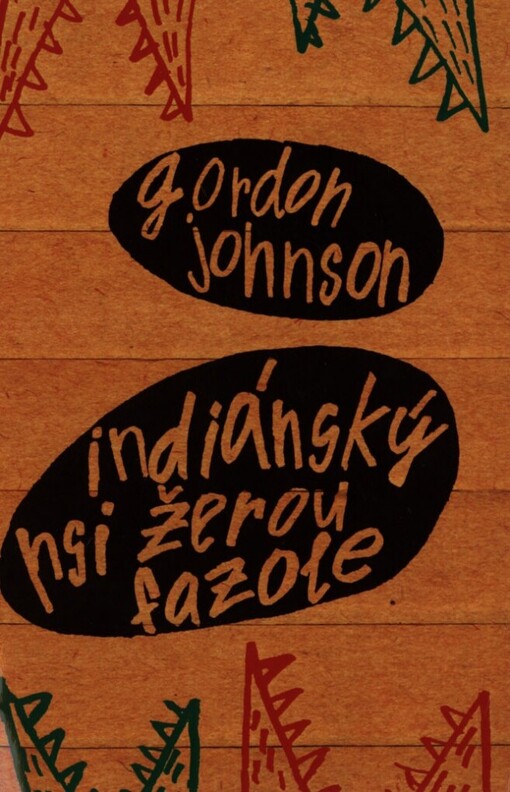 gordon
johnson
indiánský
psi žerou
fazole